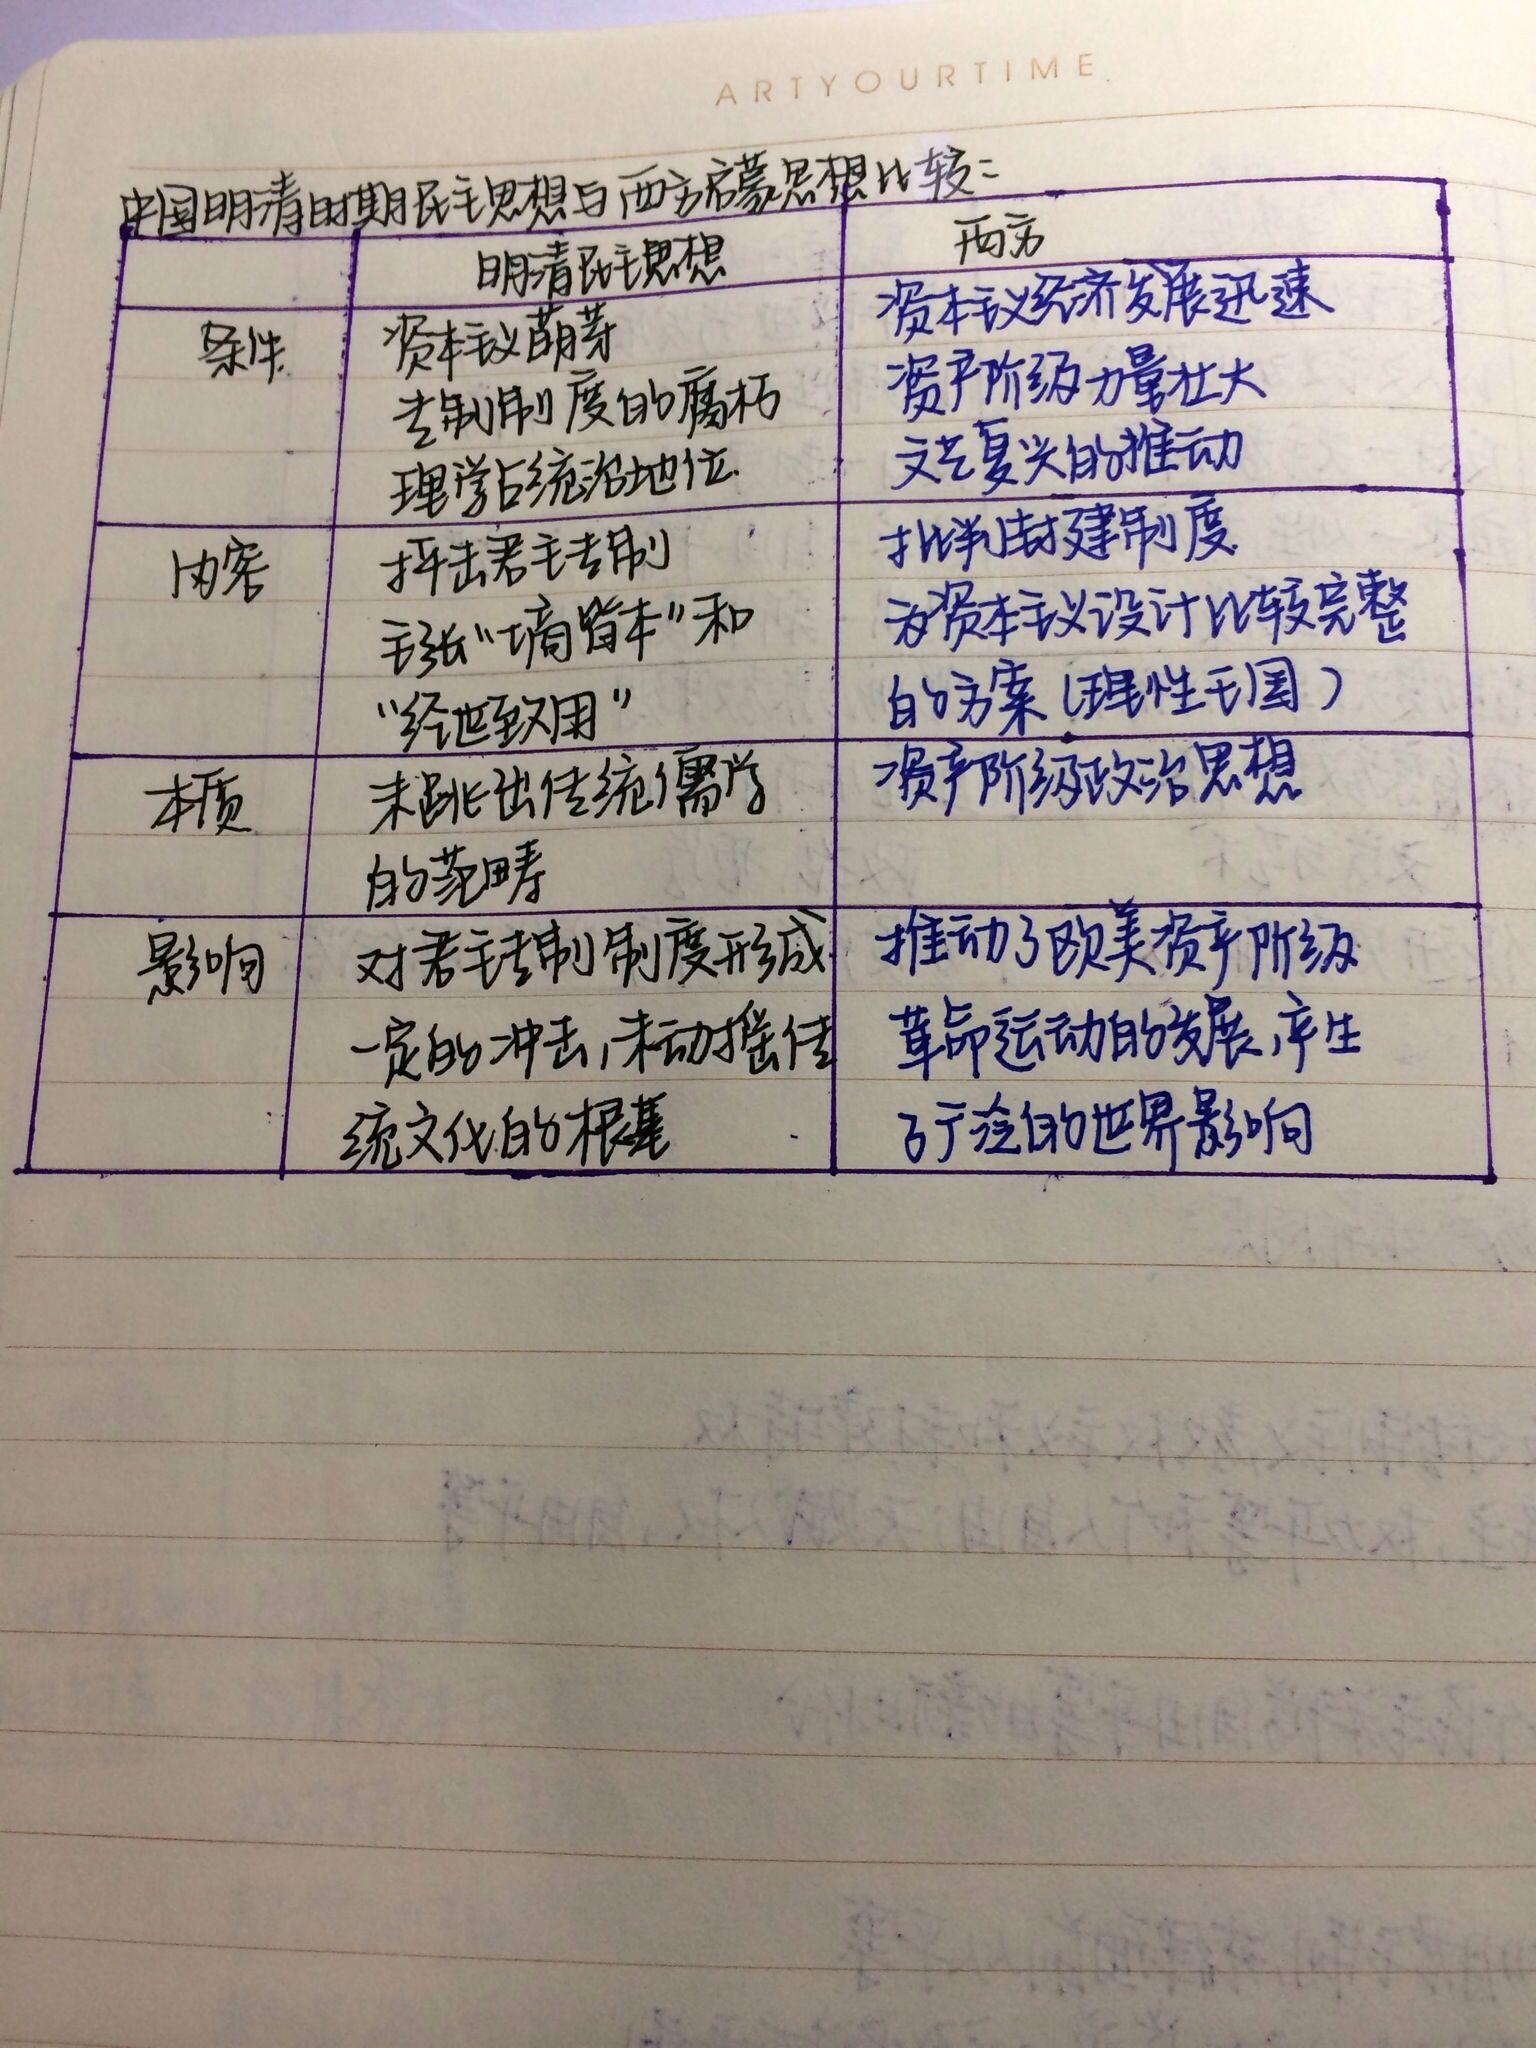 ARTYOURTIME
中国明清时期民主思想与西方启蒙思想比较:
明清民主思想
西方
条件
资本主义萌芽
专制制度的腐朽
理学占统治地位
资本主义经济发展迅速
资产阶级力量壮大
文艺复兴的推动
内容
抨击君主专制
主张“工商皆本”和
“经世致用”
批判封建制度
为资本主义设计比较完整
的方案(理性王国)
本质
未跳出传统儒学
的范畴
资产阶级政治思想
影响
对君主专制制度形成
一定的冲击,未动摇传
统文化的根基
推动了欧美资产阶级
革命运动的发展,产生
了广泛的世界影响